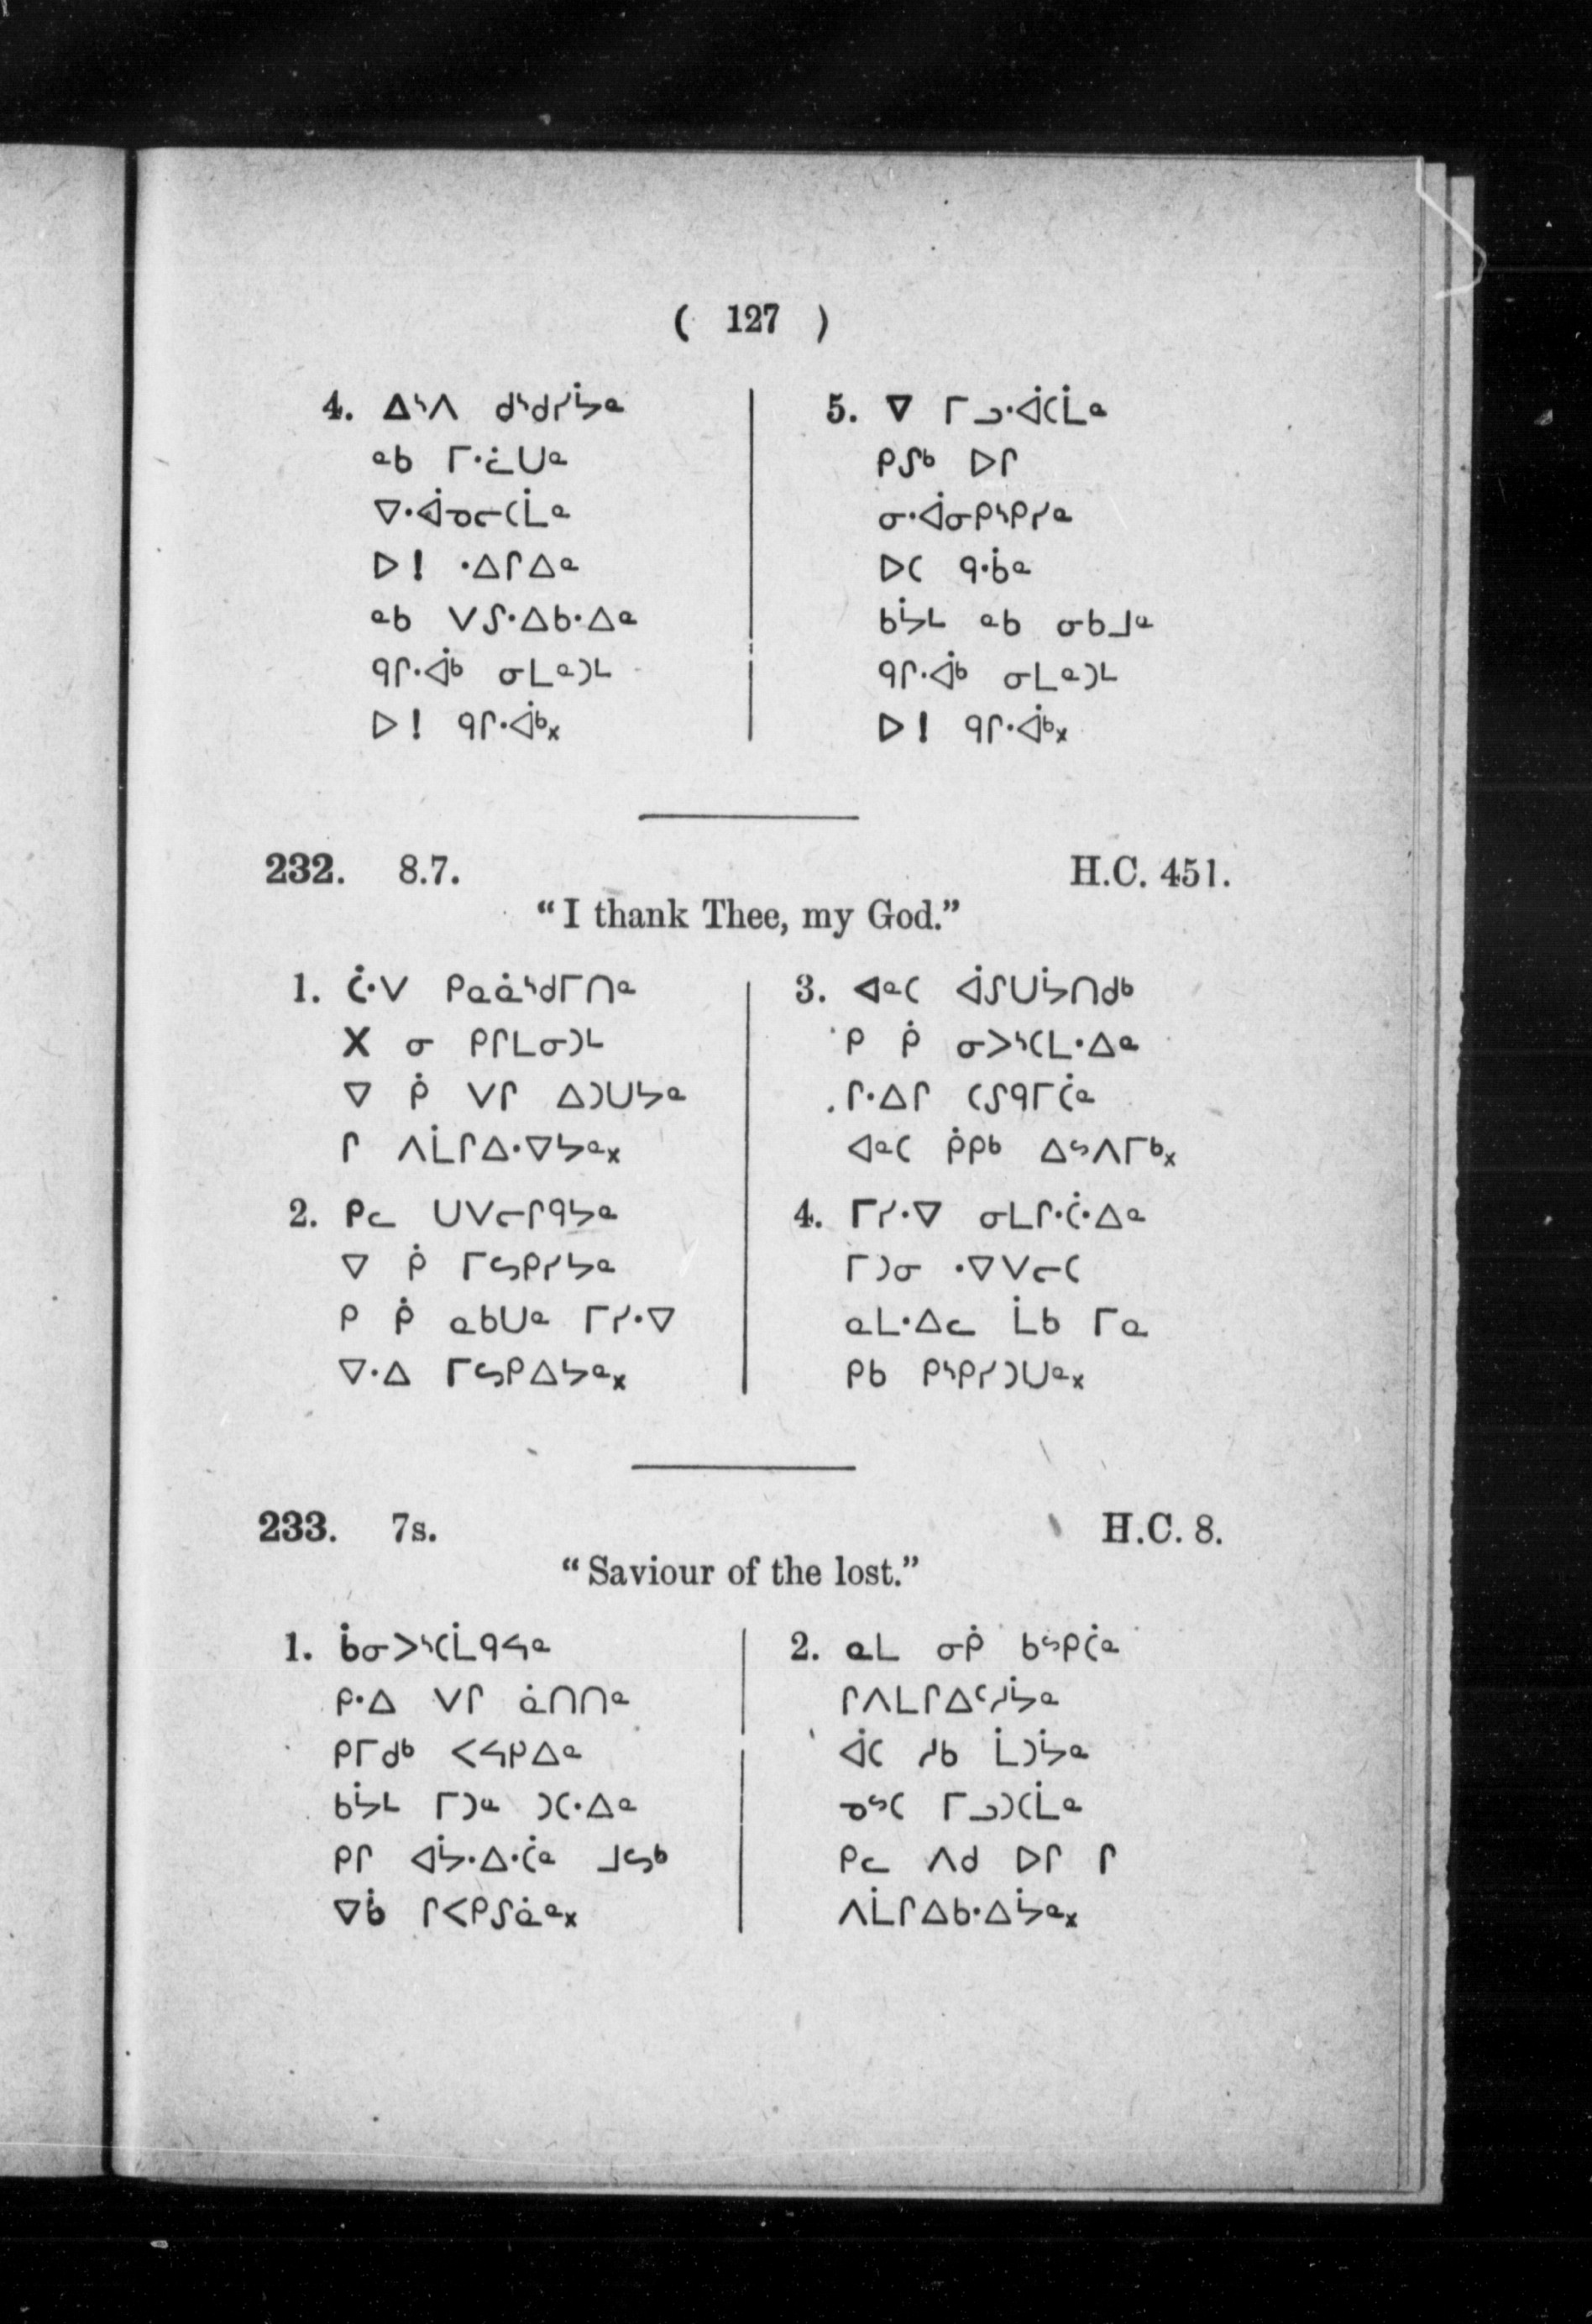 ( 127 )
4. ᐃᔅᐱ ᑯᔅᑯᓯᔮᓐ
ᓐᑲ ᒥᐧᓛᑌᓐ
ᐁᐧᐋᓄᓕᑕᒫᓐ
ᐅ! ᐧᐃᒋᐃᓐ
ᓐᑲ ᐯᔑᐧᐃᑲᐧᐃᓐ
ᑫᒋᐧᐋᒃ ᓂᒪᓐᑐᒻ
ᐅ! ᑫᒋᐧᐋᒃ᙮
5. ᐁ ᒥᓗᐧᐋᑕᒫᓐ
ᑭᔑᒃ ᐅᒋ
ᓂᐧᐋᓂᑭᔅᑭᓯᓐ
ᐅᑕ ᑫᐧᑳᓐ
ᑲᔮᒻ ᓐᑲ ᓂᑲᒧᓐ
ᑫᒋᐧᐋᒃ ᓂᒪᓐᑐᒻ
ᐅ! ᑫᒋᐧᐋᒃ᙮
232. 8.7. H.C. 451.
“I thank Thee, my God.”
1. ᑖᐧᐯ ᑭᓇᓈᔅᑯᒥᑎᓐ
X ᓂ ᑭᒋᒪᓂᑐᒻ
ᐁ ᑮ ᐯᒋ ᐃᑐᑌᔭᓐ
ᒋ ᐱᒫᒋᐃᐧᐁᔭᓐ᙮
2. ᑭᓚ ᑌᐯᓕᒋᑫᔭᓐ
ᐁ ᑮ ᒥᔕᑭᓯᔭᓐ
ᑭ ᑮ ᓇᑲᑌᓐ ᒥᓯᐧᐁ
ᐁᐧᐃ ᒥᔕᑭᐃᔭᓐ᙮
3. ᐊᓐᑕ ᐋᔑᑌᔮᑎᑯᒃ
ᑭ ᑮ ᓂᐳᔅᑕᒪᐧᐃᓐ
ᒋᐧᐃᒋ ᑕᔑᑫᒥᑖᓐ
ᐊᓐᑕ ᑮᑭᒃ ᐃᔥᐱᒥᒃ᙮
4. ᒥᓯᐧᐁ ᓂᒪᒋᐧᑖᐧᐃᓐ
ᒥᑐᓂ ᐧᐁᐯᓕᑕ
ᓇᒪᐧᐃᓚ ᒫᑲ ᒥᓇ
ᑭᑲ ᑭᔅᑭᓯᑐᑌᓐ᙮
233. 7s. H.C. 8.
“Saviour of the lost.”
1. ᑳᓂᐳᔅᑕᒫᑫᔭᓐ
ᑭᐧᐃ ᐯᒋ ᓈᑎᑎᓐ
ᑭᒥᑯᒃ ᐸᔭᑭᐃᓐ
ᑲᔮᒻ ᒥᑐᓐ ᑐᑕᐧᐃᓐ
ᑭᒋ ᐊᔮᐧᐃᐧᑖᓐ ᒧᔕᒃ
ᐁᑳ ᒋᐸᑭᔑᓈᓐ᙮
2. ᓇᒪ ᓂᑮ ᑲᔥᑭᑖᓐ
ᒋᐱᒪᒋᐃᑦᓱᔮᓐ
ᐋᑕ ᓱᑲ ᒫᑐᔮᓐ
ᓄᔥᑕ ᒥᓗᑐᑕᒫᓐ
ᑭᓚ ᐱᑯ ᐅᒋ ᒋ
ᐱᒫᒋᐃᑲᐧᐃᔮᓐ᙮